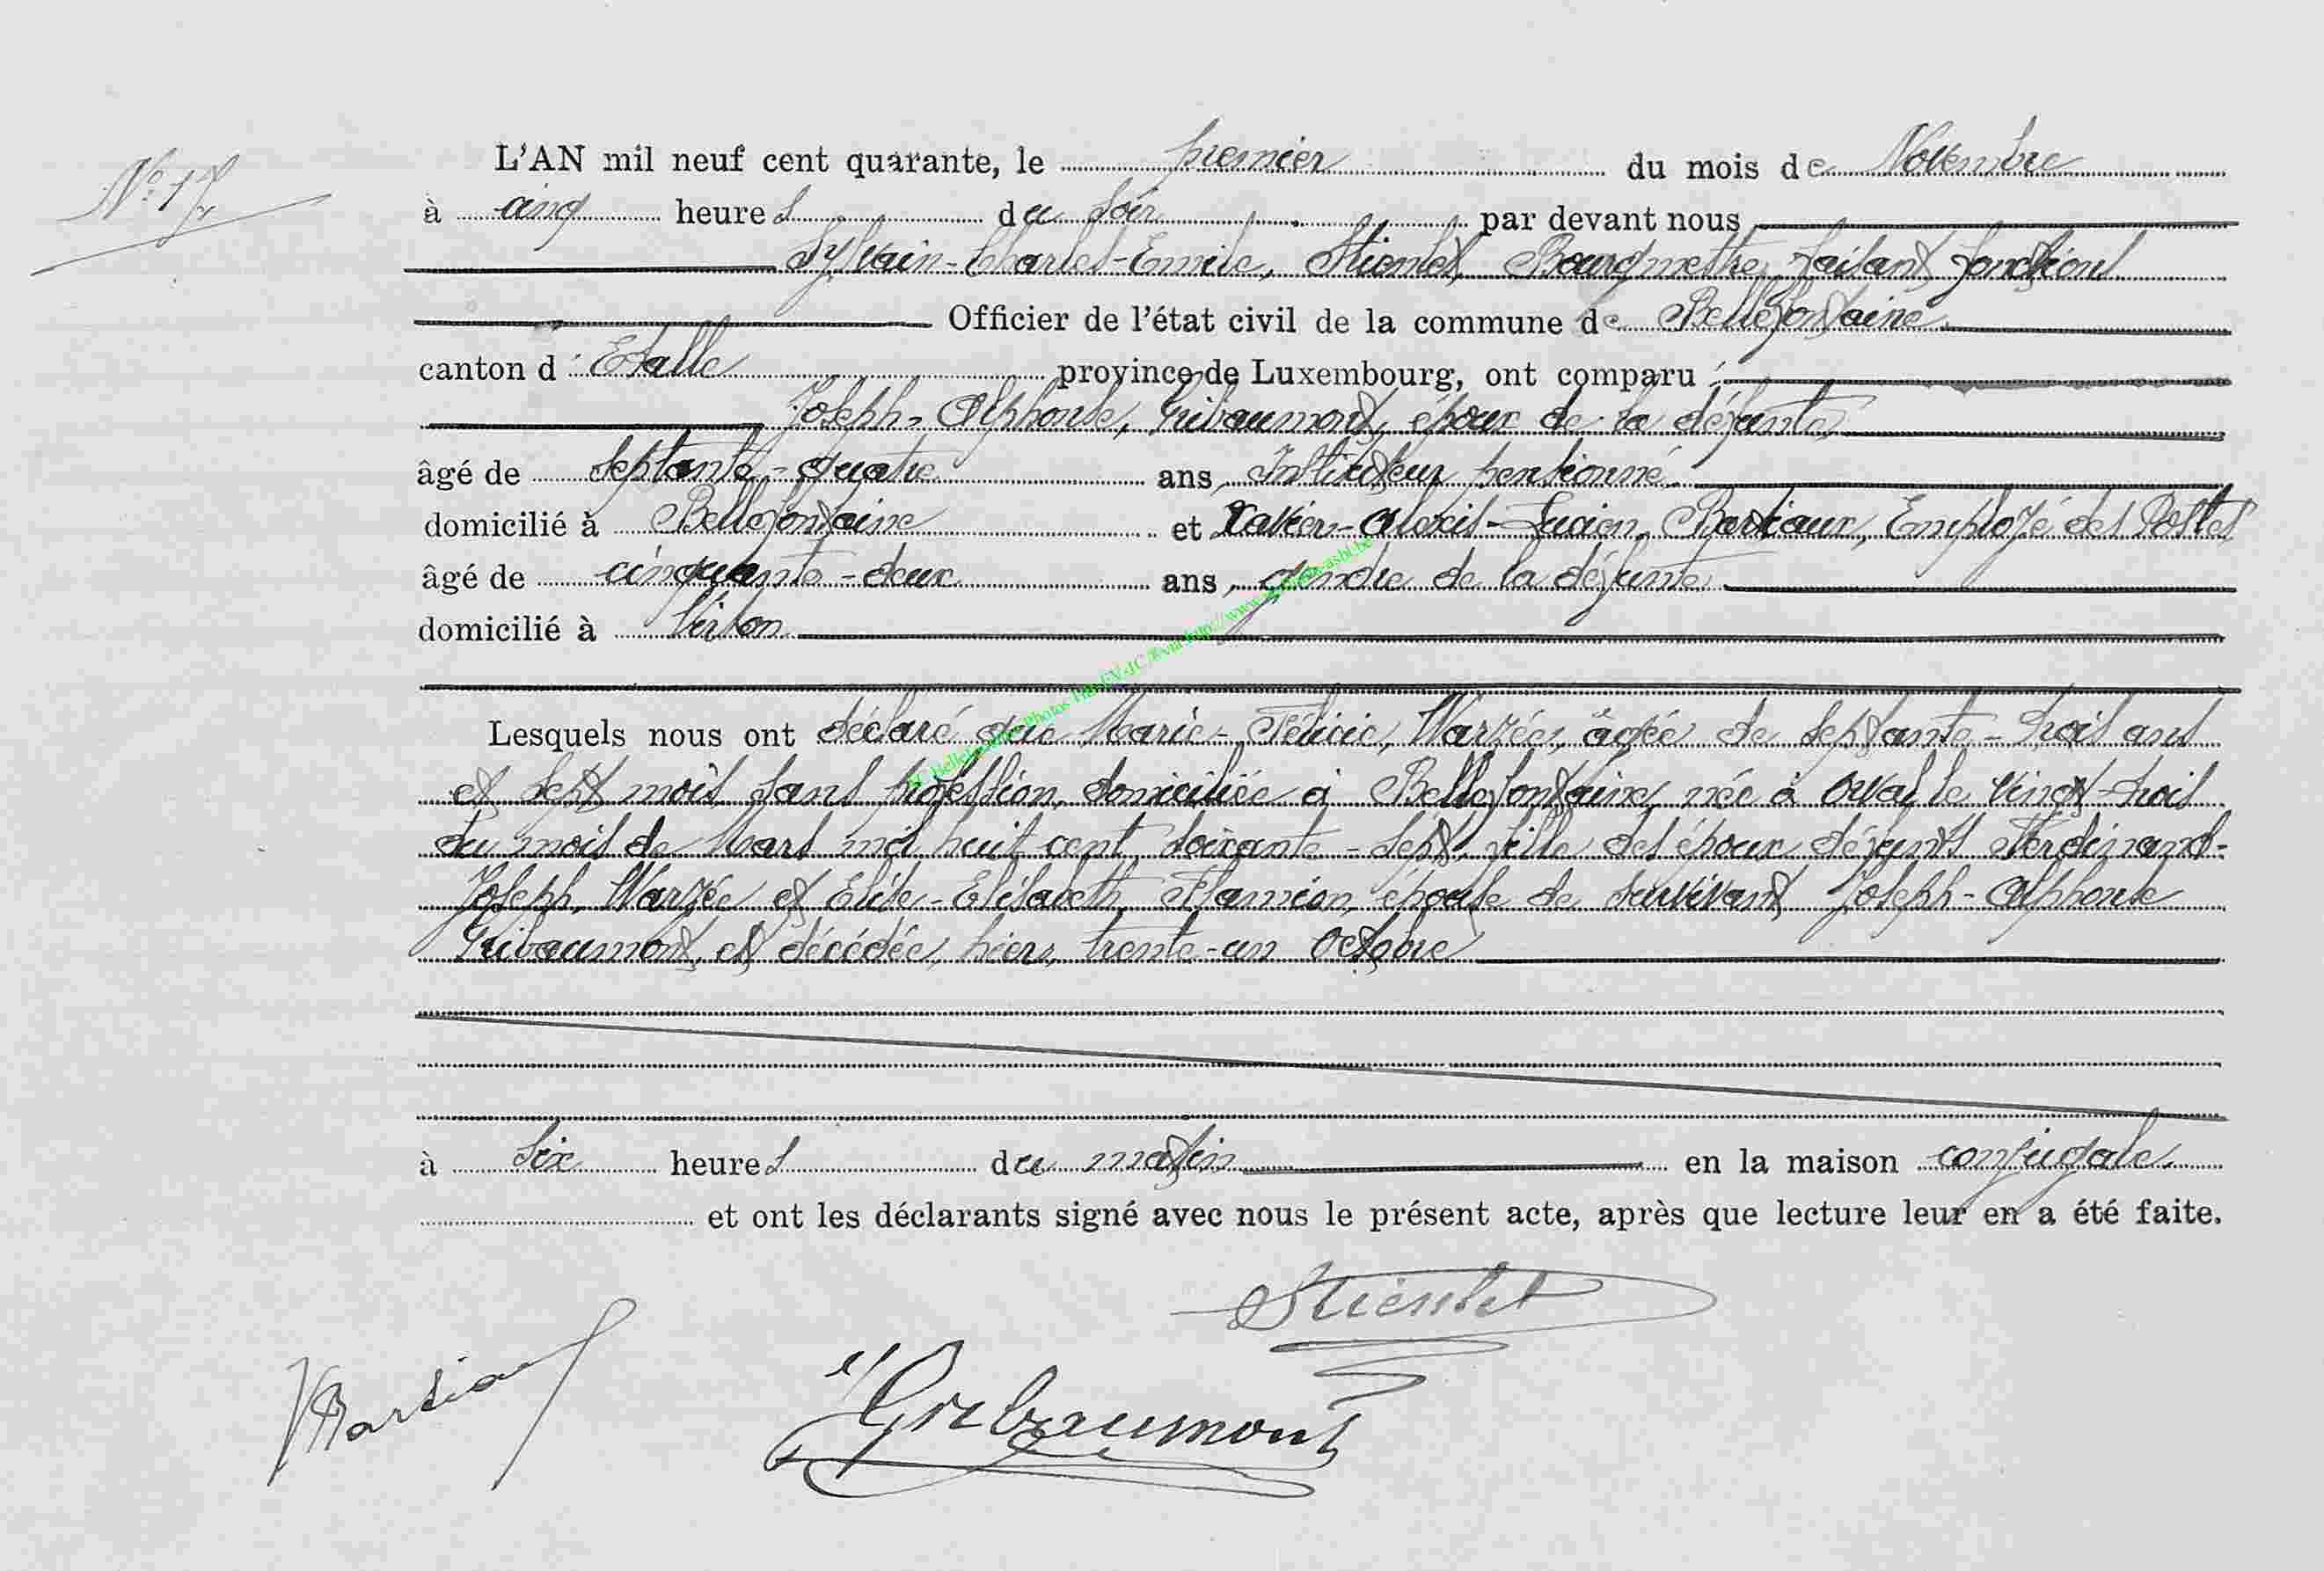 N° 17
L'AN mil neuf cent quarante, le premier du mois de Novembre
à cinq heures du soir par devant nous
Sylvain-Charles-Emile, Stiernet, Bourgmestre, faisant fonctions
Officier de l'état civil de la commune de Bellefontaine
canton d'Etalle province de Luxembourg, ont comparu :
Joseph-Alphonse, Gribaumont, époux de la défunte,
âgé de septante-quatre ans, Instituteur pensionné.
domicilié à Bellefontaine et Xavier-Alexis-Lucien, Bartiaux, Employé des Postes
âgé de cinquante-deux ans, gendre de la défunte
domicilié à Virton
Lesquels nous ont déclaré que Marie-Félicie, Warzée, âgée de septante-trois ans
et sept mois, sans profession, domiciliée à Bellefontaine, née à Orval le vingt-trois
du mois de Mars mil huit cent soixante-sept, fille des époux défunts Ferdinand-
Joseph, Warzée et Elise-Elisabeth, Flamion, épouse de survivant Joseph-Alphonse
Gribaumont, est décédée, hier, trente-un Octobre
à six heures du matin en la maison conjugale.
et ont les déclarants signé avec nous le présent acte, après que lecture leur en a été faite.
Stiernet
Gribaumont